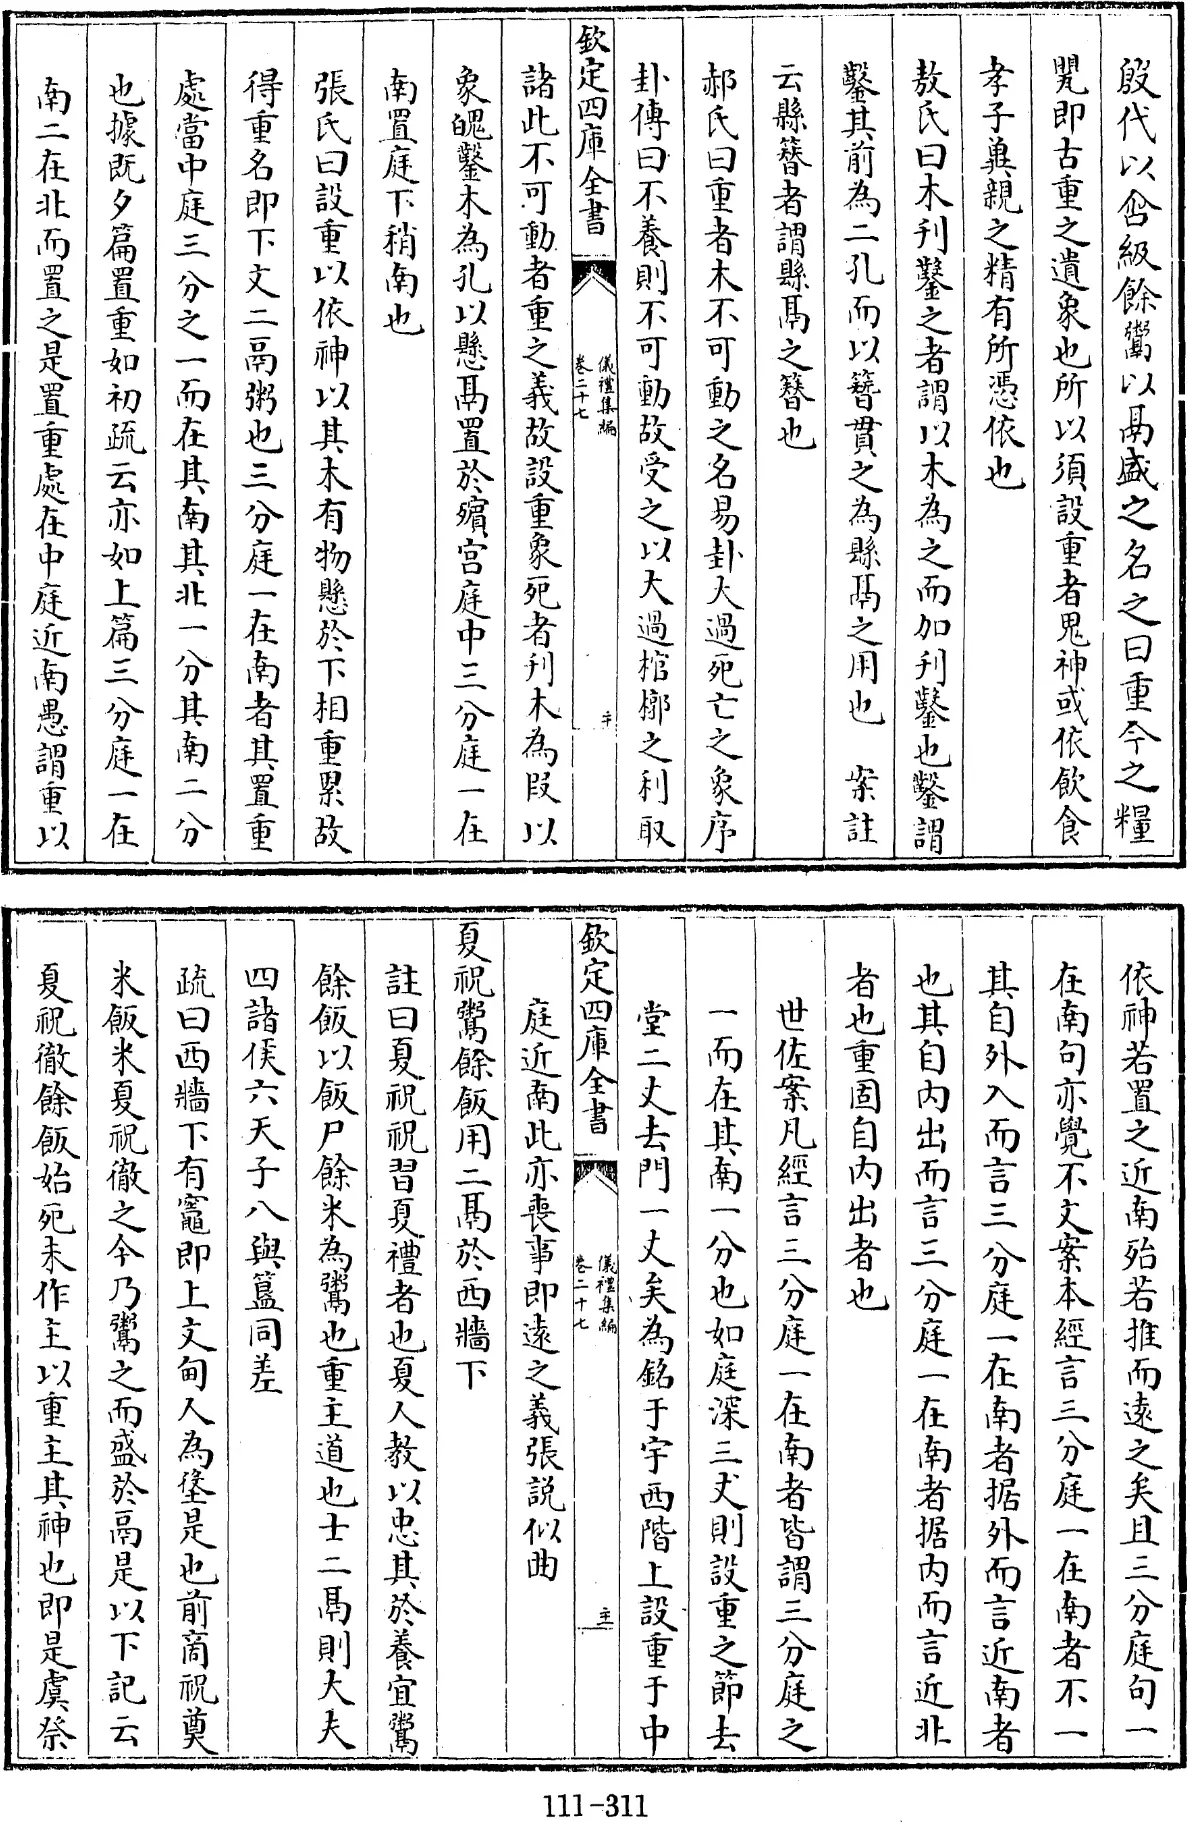 殷代以飯含餘鬻以鬲盛之名之曰重今之糧
甖即古重之遺象也所以須設重者鬼神或依飲食
孝子冀親之精有所憑依也
敖氏曰木刋鑿之者謂以木為之而加刋鑿也鑿謂
鑿其前為二孔而以簪貫之為縣鬲之用也　案註
云縣簪者謂縣鬲之簪也
郝氏曰重者木不可動之名易卦大過死亡之象序
卦傳曰不養則不可動故受之以大過棺槨之利取
欽定四庫全書
儀禮集編
卷二十七
諸此不可動者重之義故設重象死者刋木為叚以
象魄鑿木為孔以懸鬲置於殯宫庭中三分庭一在
南置庭下稍南也
張氏曰設重以依神以其木有物懸於下相重累故
得重名即下文二鬲粥也三分庭一在南者其置重
處當中庭三分之一而在其南其北一分其南二分
也據既夕篇置重如初疏云亦如上篇三分庭一在
南二在北而置之是置重處在中庭近南愚謂重以
依神若置之近南殆若推而逺之矣且三分庭句一
在南句亦覺不文案本經言三分庭一在南者不一
其自外入而言三分庭一在南者据外而言近南者
也其自内出而言三分庭一在南者据内而言近北
者也重固自内出者也
世佐案凡經言三分庭一在南者皆謂三分庭之
一而在其南一分也如庭深三丈則設重之節去
堂二丈去門一丈矣為銘于宇西階上設重于中
欽定四庫全書
儀禮集編
卷二十七
庭近南此亦喪事即逺之義張説似曲
夏祝鬻餘飯用二鬲於西牆下
註曰夏祝祝習夏禮者也夏人教以忠其於養宜鬻
餘飯以飯尸餘米為鬻也重主道也士二鬲則大夫
四諸侯六天子八與簋同差
疏曰西牆下有竈即上文甸人為垼是也前商祝奠
米飯米夏祝徹之今乃鬻之而盛於鬲是以下記云
夏祝徹餘飯始死未作主以重主其神也即是虞祭
111-311